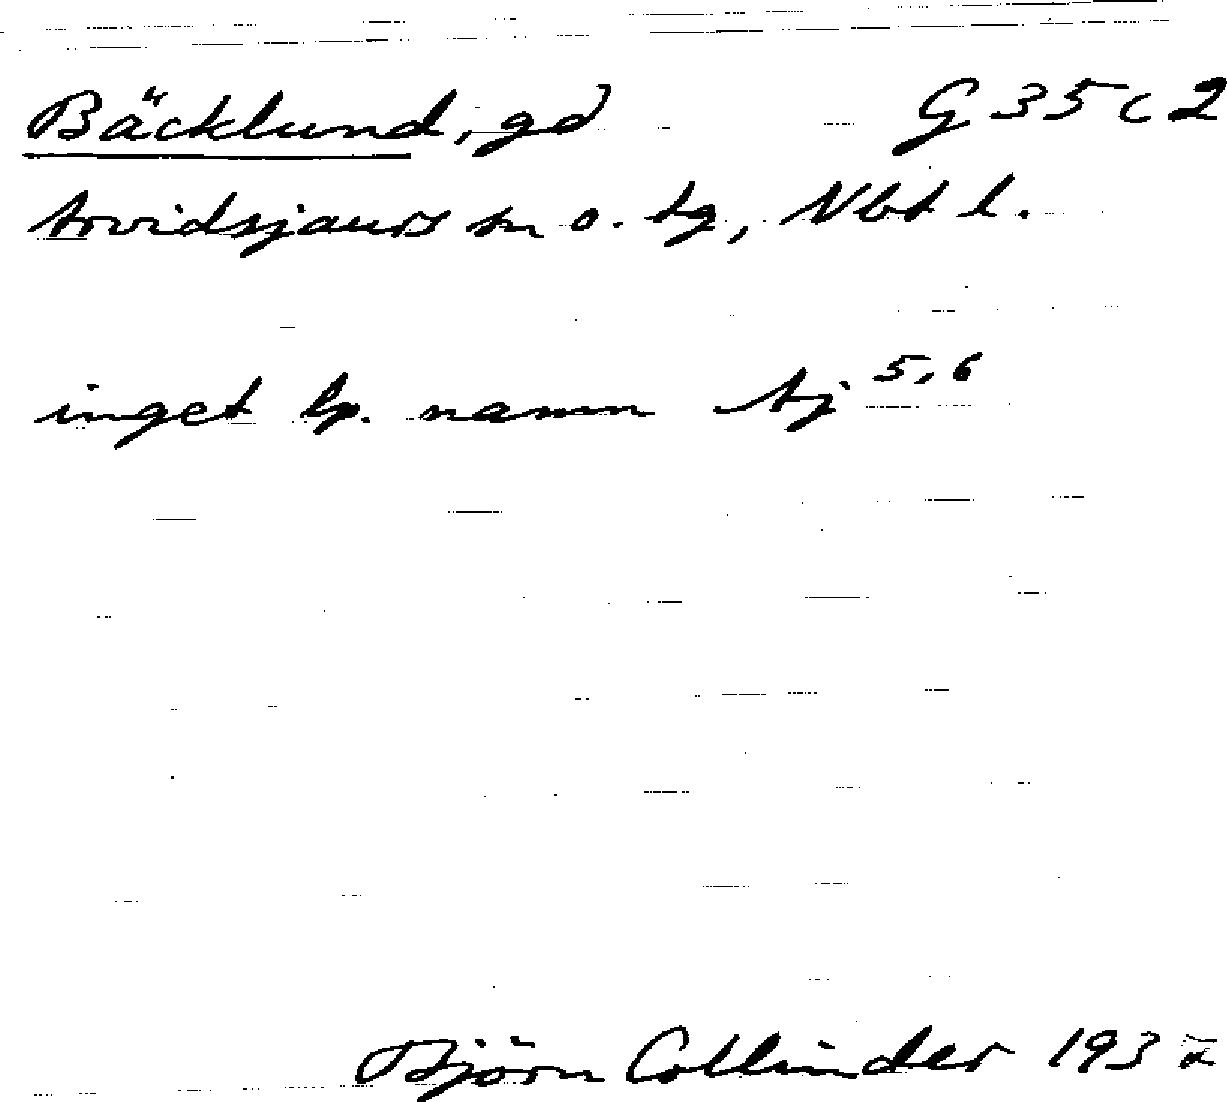 Bäcklund, gd G 35 c 2
Arvidsjaurs sn o. tg, Nbt l.
inget lp. namn Aj 5, 6
Björn Collinder